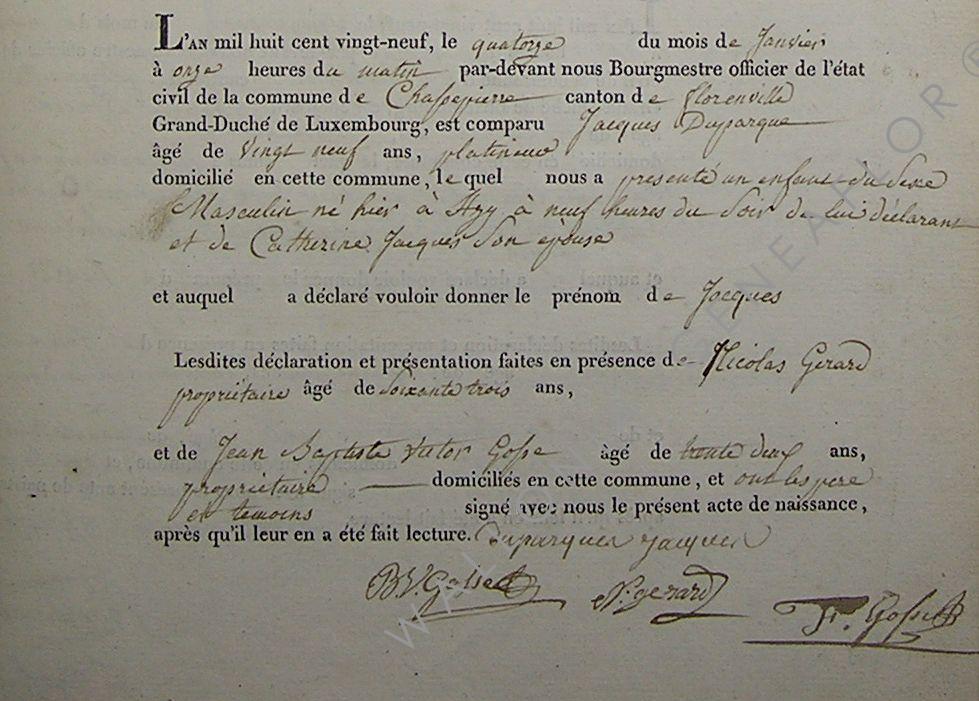 L'AN mil huit cent vingt-neuf, le quatorze du mois de Janvier
à onze heures du matin par-devant nous Bourgmestre officier de l'état
civil de la commune de Chassepierre canton de florenville
Grand-Duché de Luxembourg, est comparu Jacques Duparque
âgé de Vingt neuf ans, platineur
domicilié en cette commune, le quel nous a presenté un enfant du Sexe
Masculin né hier à Azy à neuf heures du Soir de lui déclarant
et de Catherine Jacques Son epouse
et auquel a déclaré vouloir donner le prénom de Jacques
Lesdites déclaration et présentation faites en présence de Nicolas Gerard
propriétaire âgé de Soixante trois ans,
et de Jean Baptiste Victor Gosse âgé de trente deux ans,
propriétaire domiciliés en cette commune, et ont les pere
et temoins signé avec nous le présent acte de naissance,
après qu'il leur en a été fait lecture. Duparques Jacques
BV. Gosse N. gerard Fr. Gosse